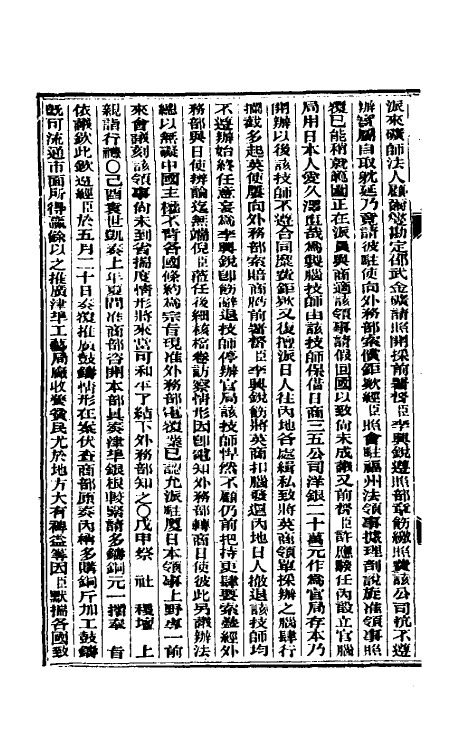 派來礦師法人顧勘定邵武金礦請照開採前署督臣李興銳遵照部章飭繳照費該公司抗不遵
辦實屬自取躭延乃竟請彼駐使向外務部索償鉅欵經臣照會駐福州法領事據理剖說旋准領事照
覆已能稍就範圍正在派員與商適該領事請假回國以致尚未成議又前督臣許應騤任內設立官腦
局用日本人愛久澤直哉為製腦技師由該技師保借日商三五公司洋銀二十萬元作為官局存本乃
開辦以後該技師不遵合同糜費鉅欵又復擅派日人往內地各處緝私致將英商領單採辦之腦肆行
攔截多起英使屢向外務部索賠商前署督臣李興銳飭將英商扣腦發還內地日人撤退該技師均
不遵辦始終任意妄為李興銳即飭辭退技師停辦官局該技師悍然不顧仍前把持更肆要索並經外
務部與日使辯論迄無端倪臣蒞任後細核檔卷訪察情形因即電知外務部轉商日使彼此另議辦法
總以無礙中國主權不背各國條約為宗旨現准外務部電覆業已認允派駐廈日本領事上野專一前
來會議刻該領事尚未到省揣度情形將來當可和平了結下外務部知之〇戊申祭 社 稷壇 上
親詣行禮〇己酉袁世凱奏上年夏間准商部咨開本部具奏津準銀根較緊請多鑄銅元一摺奉 旨
依議欽此欽遵經臣於五月二十日奏覆推廣鼓鑄情形在案伏查商部原奏內稱多購銅斤加工鼓鑄
既可流通市面所得贏餘以之推廣津準工藝局廠收養貧民尤於地方大有裨益等因臣默揣各國致